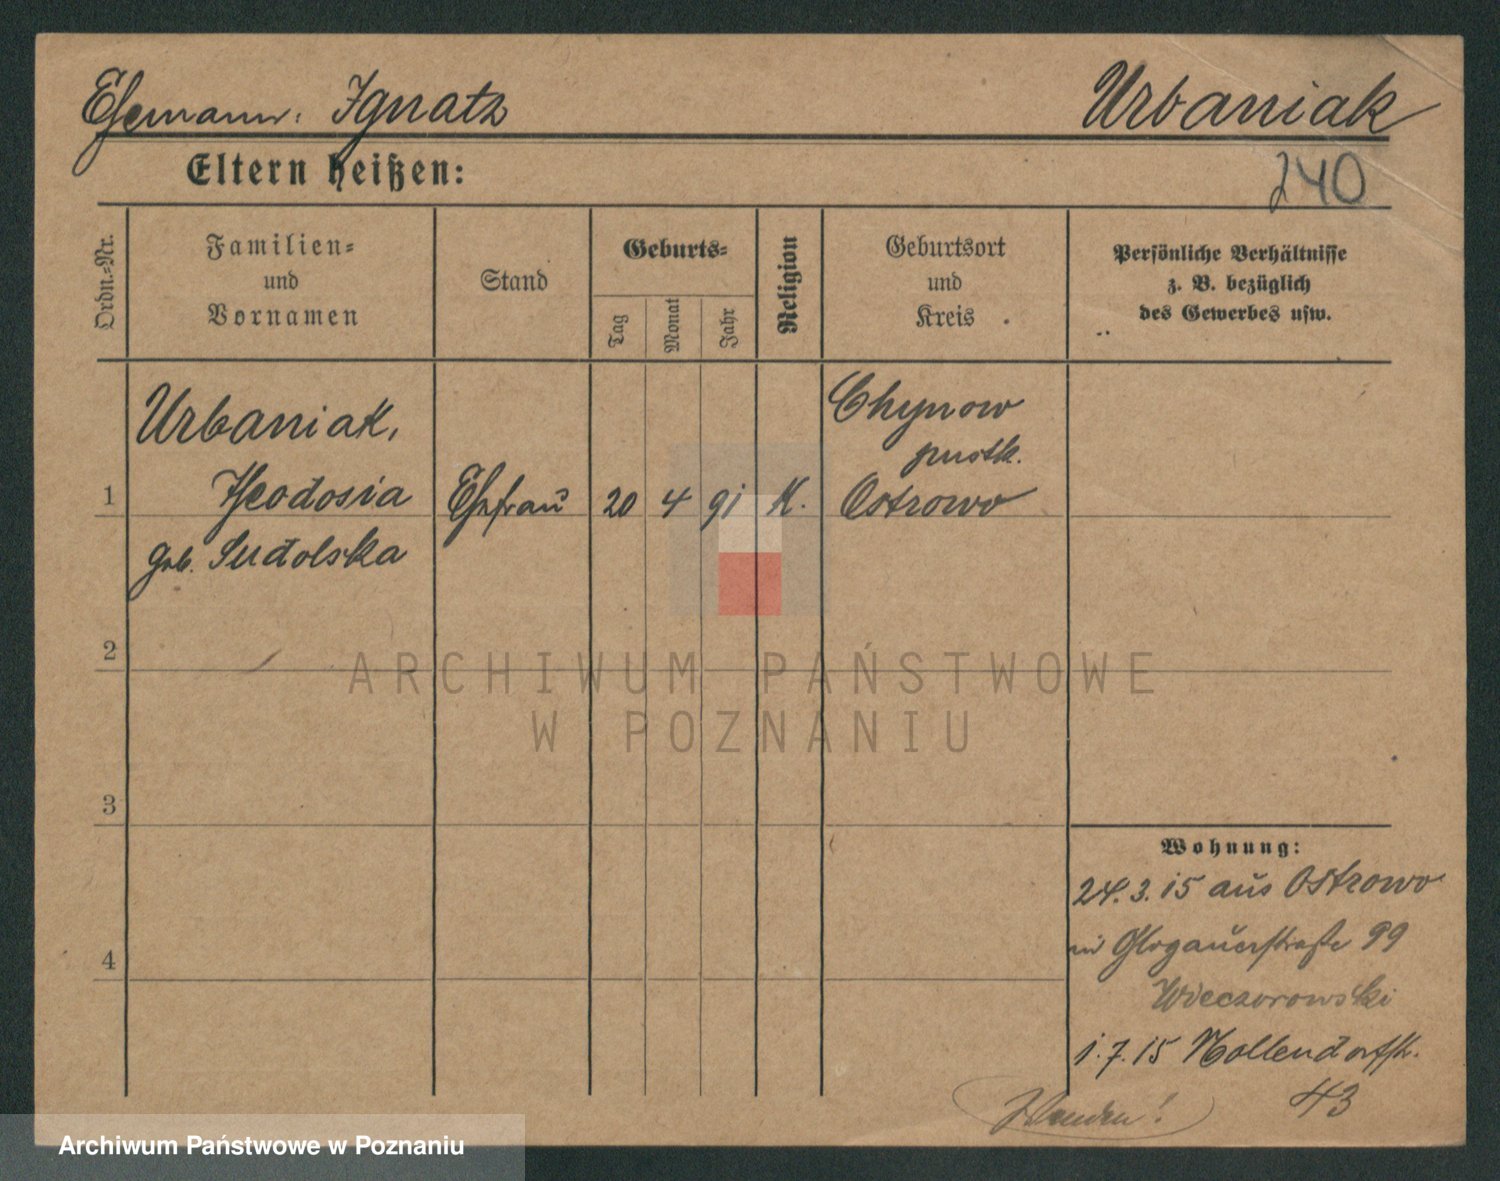 Ehemann: Ignatz Urbaniak
240
Eltern heißen:
Ordn.=Nr.
Familien=
und
Vornamen
Stand
Geburts=
Tag
Monat
Jahr
Religion
Geburtsort
und
Kreis
Persönliche Verhältnisse
z. B. bezüglich
des Gewerbes usw.
Urbaniak,
Theodosia
geb. Sudolska
1
Ehefrau
20 4 91 K.
Chynow
pustk.
Ostrowo
2
3
4
ARCHIWUM PAŃSTWOWE
W POZNANIU
Wohnung:
24.3.15 aus Ostrowo
in Glogauerstraße 99
Wieczorowski
1.7.15 Nollendorfstr.
43
Wenden!
Archiwum Państwowe w Poznaniu